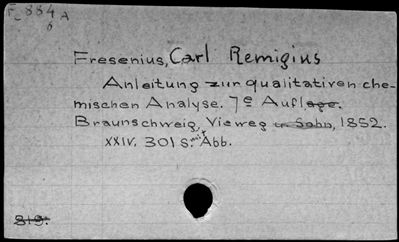 F_884A
6
Fresenius, Carl Remigius
Anleitung zur qualitativen che-
mischen Analyse. 7e Auflage.
Braunschweig, Vieweg u. Sohn, 1852.
XXIV. 301 S. mit Abb.
819.